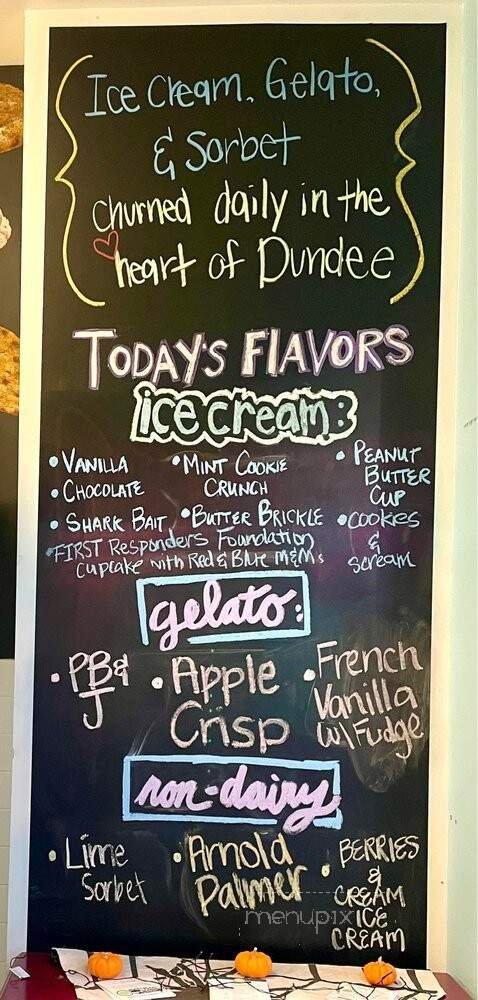 Ice Cream, Gelato,
& Sorbet
churned daily in the
heart of Dundee
TODAY'S FLAVORS
ice cream:
• VANILLA
• CHOCOLATE
• SHARK BAIT
• MINT COOKIE
CRUNCH
• BUTTER BRICKLE
• PEANUT
BUTTER
CUP
• COOKIES
&
SCREAM
• FIRST Responders Foundation
Cupcake with Red & Blue M&M's
gelato:
• PB &
J
• Apple
Crisp
• French
Vanilla
w/ Fudge
non-dairy
• Lime
Sorbet
• Arnold
Palmer
• BERRIES
&
CREAM
ICE
CREAM
menupix